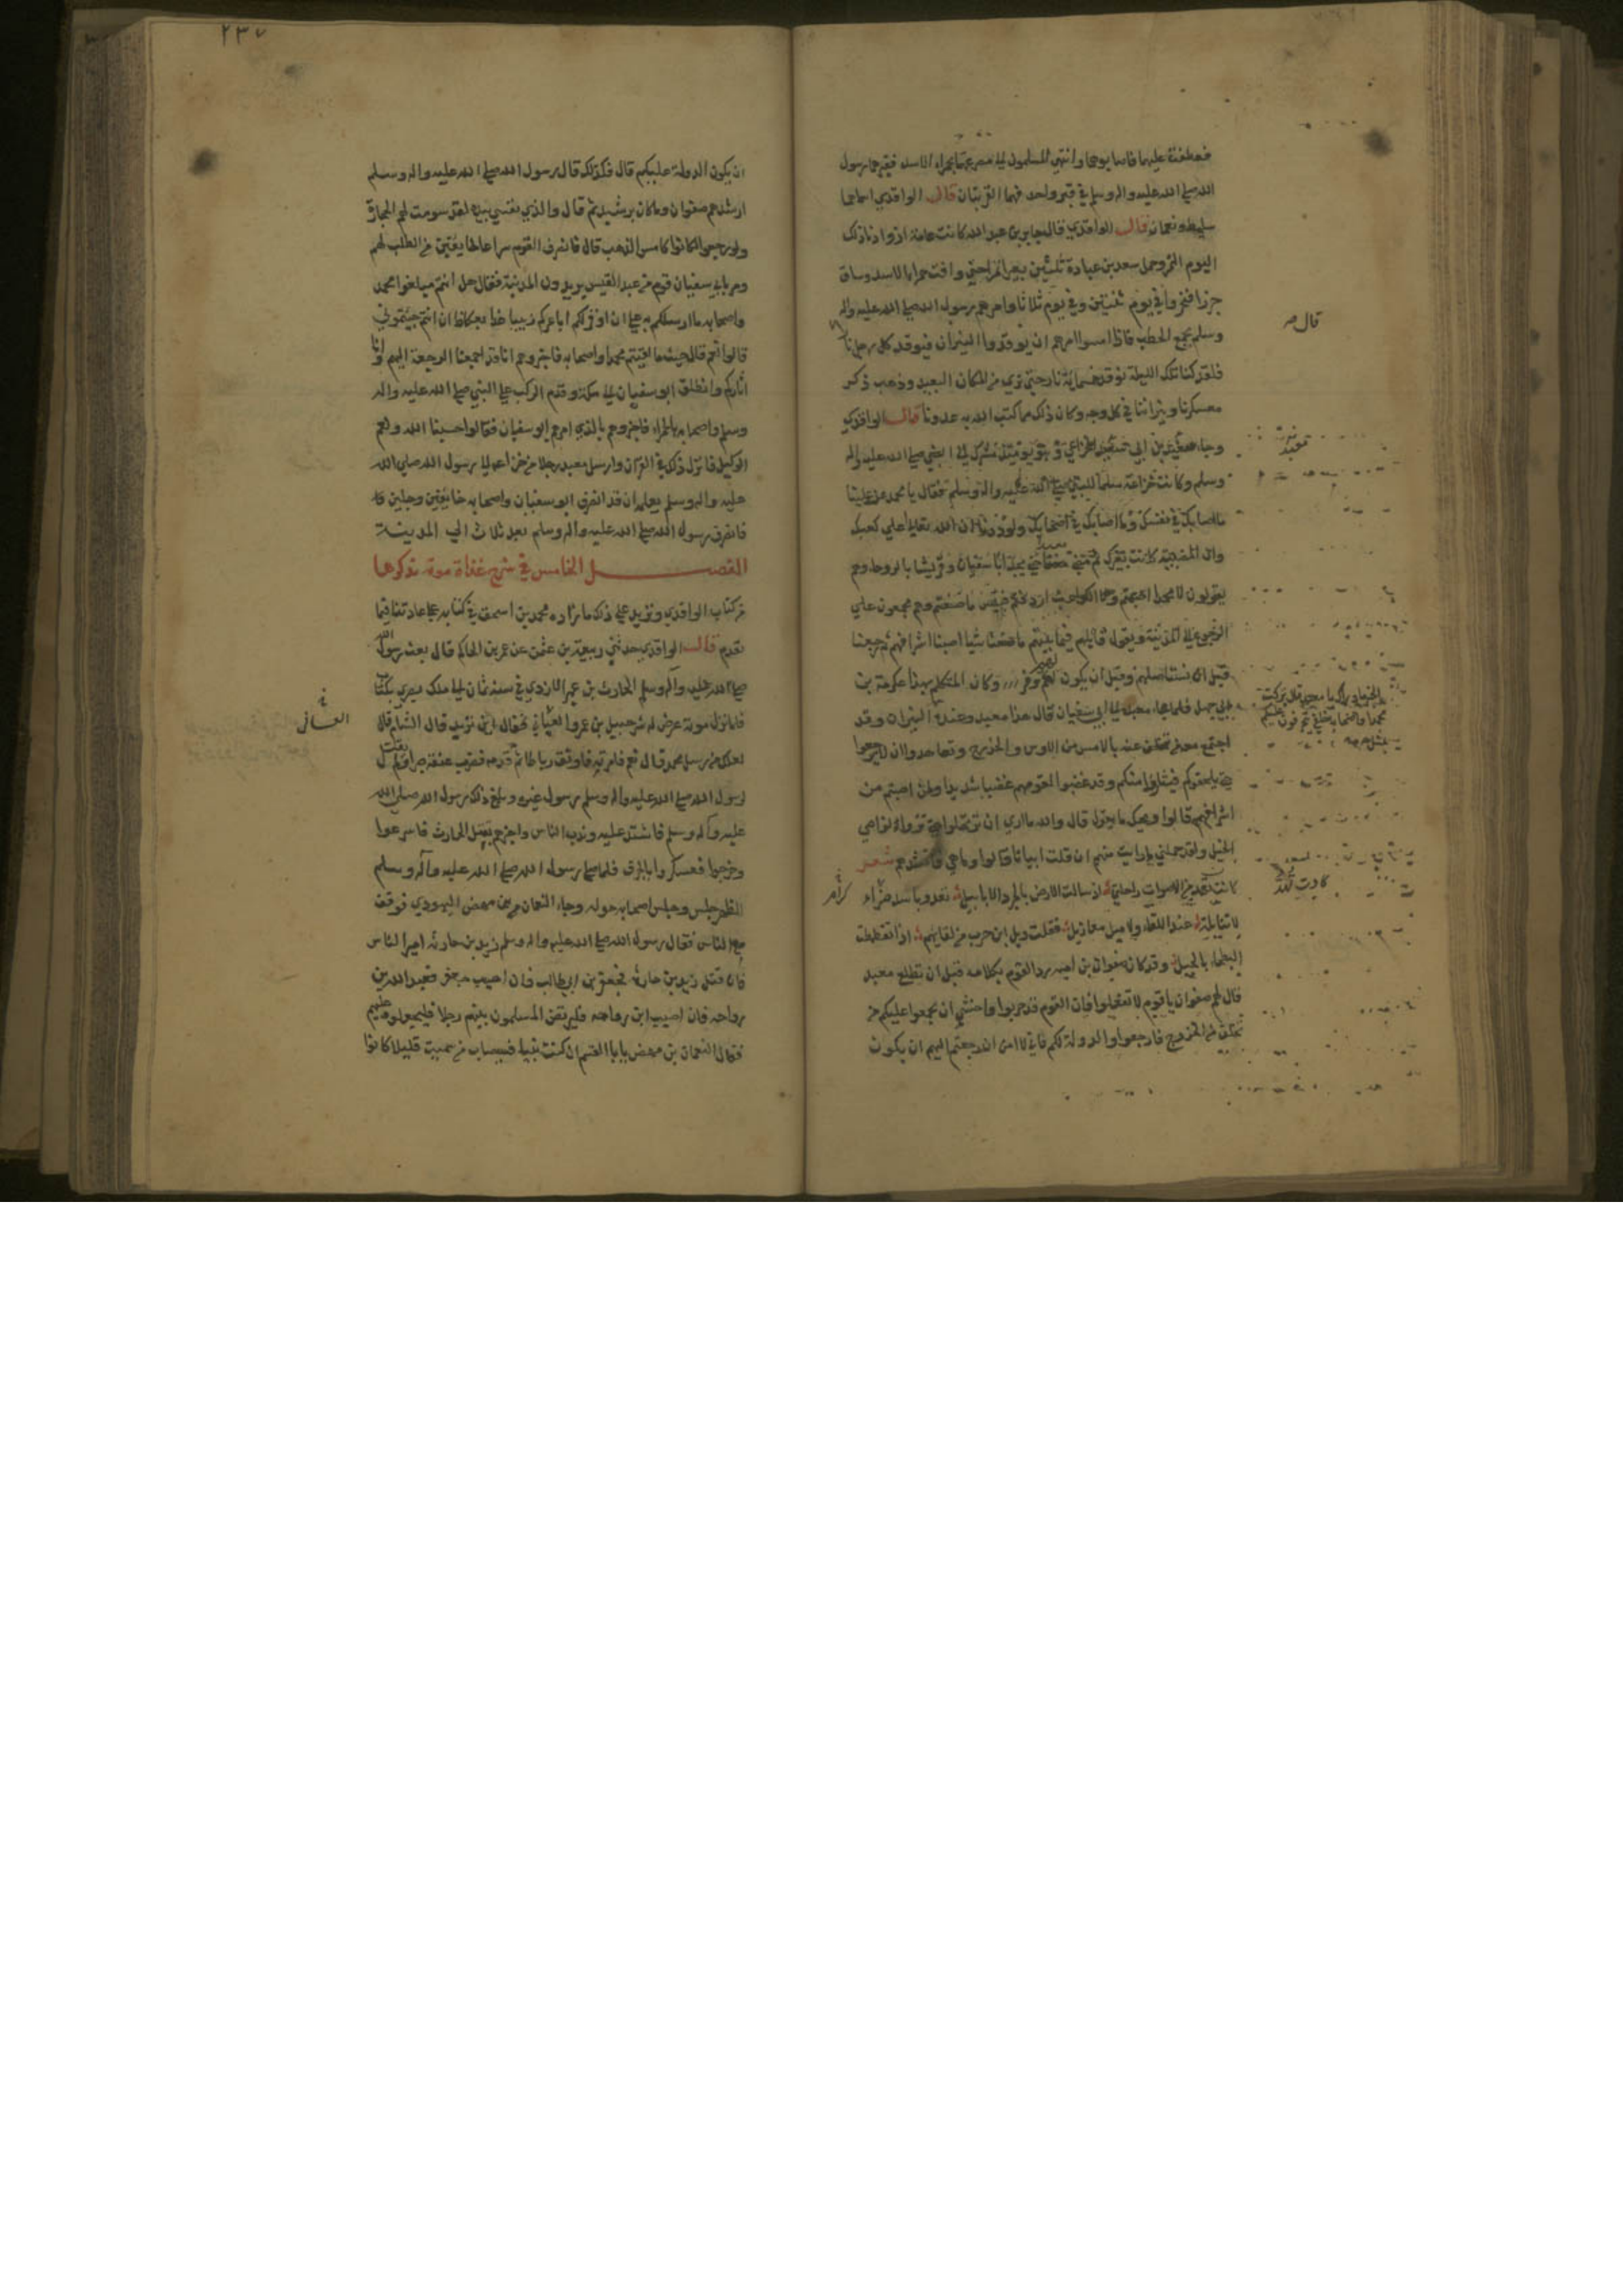 فعطفت عليهما فاصابوهما وانتهى المسلمون الى مصرعهما بحمراء الاسد فقبرهما رسول
الله صلى الله عليه واله وسلم في قبر واحد فهما القرينان قال الواقدي اسماهما
سليط ونعمان قال الواقدي قال جابر بن عبد الله كانت عامة ازوادنا ذلك
اليوم التمر وحمل سعد بن عبادة ثلثين بعيرا تمرا حتى وافت حمراء الاسد وساق
جزرا فنحروا في يوم ثنتين وفي يوم ثلاثا وامرهم رسول الله صلى الله عليه واله
وسلم بجمع الحطب فاذا امسوا امرهم ان يوقدوا النيران فيوقد كل رجل نارا
قال
فلقد كنا تلك الليلة نوقد خمسمائة نار حتى ترى من المكان البعيد وذهب ذكر
معسكرنا ونيراننا في كل وجه وكان ذلك مما كبت الله به عدونا قال الواقدي
وجاء معبد بن ابي معبد الخزاعي وهو يومئذ مشرك الى النبي صلى الله عليه واله
وسلم وكانت خزاعة سلما للنبي صلى الله عليه واله وسلم فقال يا محمد عز علينا
ما اصابك في نفسك وما اصابك في اصحابك ولوددنا ان الله تعالى اعلى كعبك
وان المصيبة كانت بغيرك ثم مضى معبد حتى يجد ابا سفيان وقريشا بالروحاء وهم
يقولون لا محمدا اصبتم ولا الكواعب اردفتم فبئس ما صنعتم وهم مجمعون على
الرجوع الى المدينة ويقول قائلهم فيما بينهم ما صنعنا شيا اصبنا اشرافهم ثم رجعنا
قبل ان نستاصلهم وقبل ان يكون لهم وفر وكان المتكلم بهذا عكرمة بن
ابي جهل فلما جاء معبد الى ابي سفيان قال هذا معبد وعنده الخبر ما وراك يا معبد قال تركت
محمدا واصحابه خلفي يتحرقون عليكم
بمثل النيران وقد
اجتمع معه من تخلف عنه بالامس من الاوس والخزرج وتعاهدوا ان لا يرجعوا
حتى يلحقوكم فيثاروا منكم وقد غضبوا لقومهم غضبا شديدا ولمن اصبتم من
اشرافهم قالوا ويحك ما تقول قال والله ما ارى ان ترتحلوا حتى تروا نواصي
الخيل ولقد حملني ما رايت منهم ان قلت ابياتا قالوا وما هي فانشدهم شعر
كادت تهد من الاصوات راحلتي اذ سالت الارض بالجرد الابابيل تعدو باسد ضراء
لا تنابلة عند اللقاء ولا ميل معازيل فقلت ويل ابن حرب من لقائهم اذا تغطمطت
البطحاء بالجيل وقد كان صفوان بن امية رد القوم بكلامه قبل ان تطلع معبد
قال لهم صفوان يا قوم لا تفعلوا فان القوم قد حربوا واخشى ان يجمعوا عليكم من
تخلف من الخزرج فارجعوا والدولة لكم فاني لا امن ان رجعتم اليهم ان يكون
٢٣٧
ان يكون الدولة عليكم قال فكذلك قال رسول الله صلى الله عليه واله وسلم
ارشدهم صفوان وما كان برشيد ثم قال والذي نفسي بيده لقد سومت لهم الحجارة
ولو رجعوا لكانوا كامس الذاهب قال فانصرف القوم سراعا خايفين من الطلب لهم
ومر بابي سفيان قوم من عبد القيس يريدون المدينة فقال هل انتم مبلغوا محمد
واصحابه ما ارسلكم به على ان اوقر لكم اباعركم زبيبا غدا بعكاظ ان انتم جئتموني
قالوا نعم قال حيث ما لقيتم محمدا واصحابه فاخبروهم انا قد اجمعنا الرجعة اليهم وانا
اثاركم وانطلق ابو سفيان الى مكة وقدم الركب على النبي صلى الله عليه واله
وسلم واصحابه بالحمراء فاخبروهم بالذي امرهم ابو سفيان فقالوا حسبنا الله ونعم
الوكيل فانزل ذلك في القرآن وارسل معبد رجلا من خزاعة الى رسول الله صلى الله
عليه واله وسلم يعلمه ان قد انصرف ابو سفيان واصحابه خايفين وجلين
فانصرف رسول الله صلى الله عليه واله وسلم بعد ثلاث الى المدينة
الفصل الخامس في شرح غزاة موتة نذكرها
من كتاب الواقدي ونزيد على ذلك ما زاده محمد بن اسحق في كتابه على عادتنا فيما
تقدم قال الواقدي حدثني ربيعة بن عثمن عن عمر بن الحكم قال بعث رسول الله
صلى الله عليه واله وسلم الحارث بن عمير الازدي في سنة ثمان الى ملك بصرى بكتاب
فلما نزل موتة عرض له شرحبيل بن عمرو الغساني فقال اين تريد قال الشام قال
الغساني
لعلك من رسل محمد قال نعم فامر به فاوثق رباطا ثم قدمه فضرب عنقه صبرا ولم يقتل
لرسول الله صلى الله عليه واله وسلم رسول غيره وبلغ ذلك رسول الله صلى الله
عليه وآله وسلم فاشتد عليه وندب الناس واخبرهم بقتل الحارث فاسرعوا
وخرجوا فعسكروا بالجرف فلما صلى رسول الله صلى الله عليه وآله وسلم
الظهر جلس وجلس اصحابه حوله وجاء النعمان بن مهض اليهودي فوقف
مع الناس فقال رسول الله صلى الله عليه واله وسلم زيد بن حارثة امير الناس
فان قتل زيد بن حارثة فجعفر بن ابي طالب فان اصيب جعفر فعبد الله بن
رواحة فان اصيب ابن رواحة فليرتض المسلمون بينهم رجلا فليجعلوه عليهم
فقال النعمان بن مهض يا ابا القسم ان كنت نبيا فسيصاب من سميت قليلا كانوا